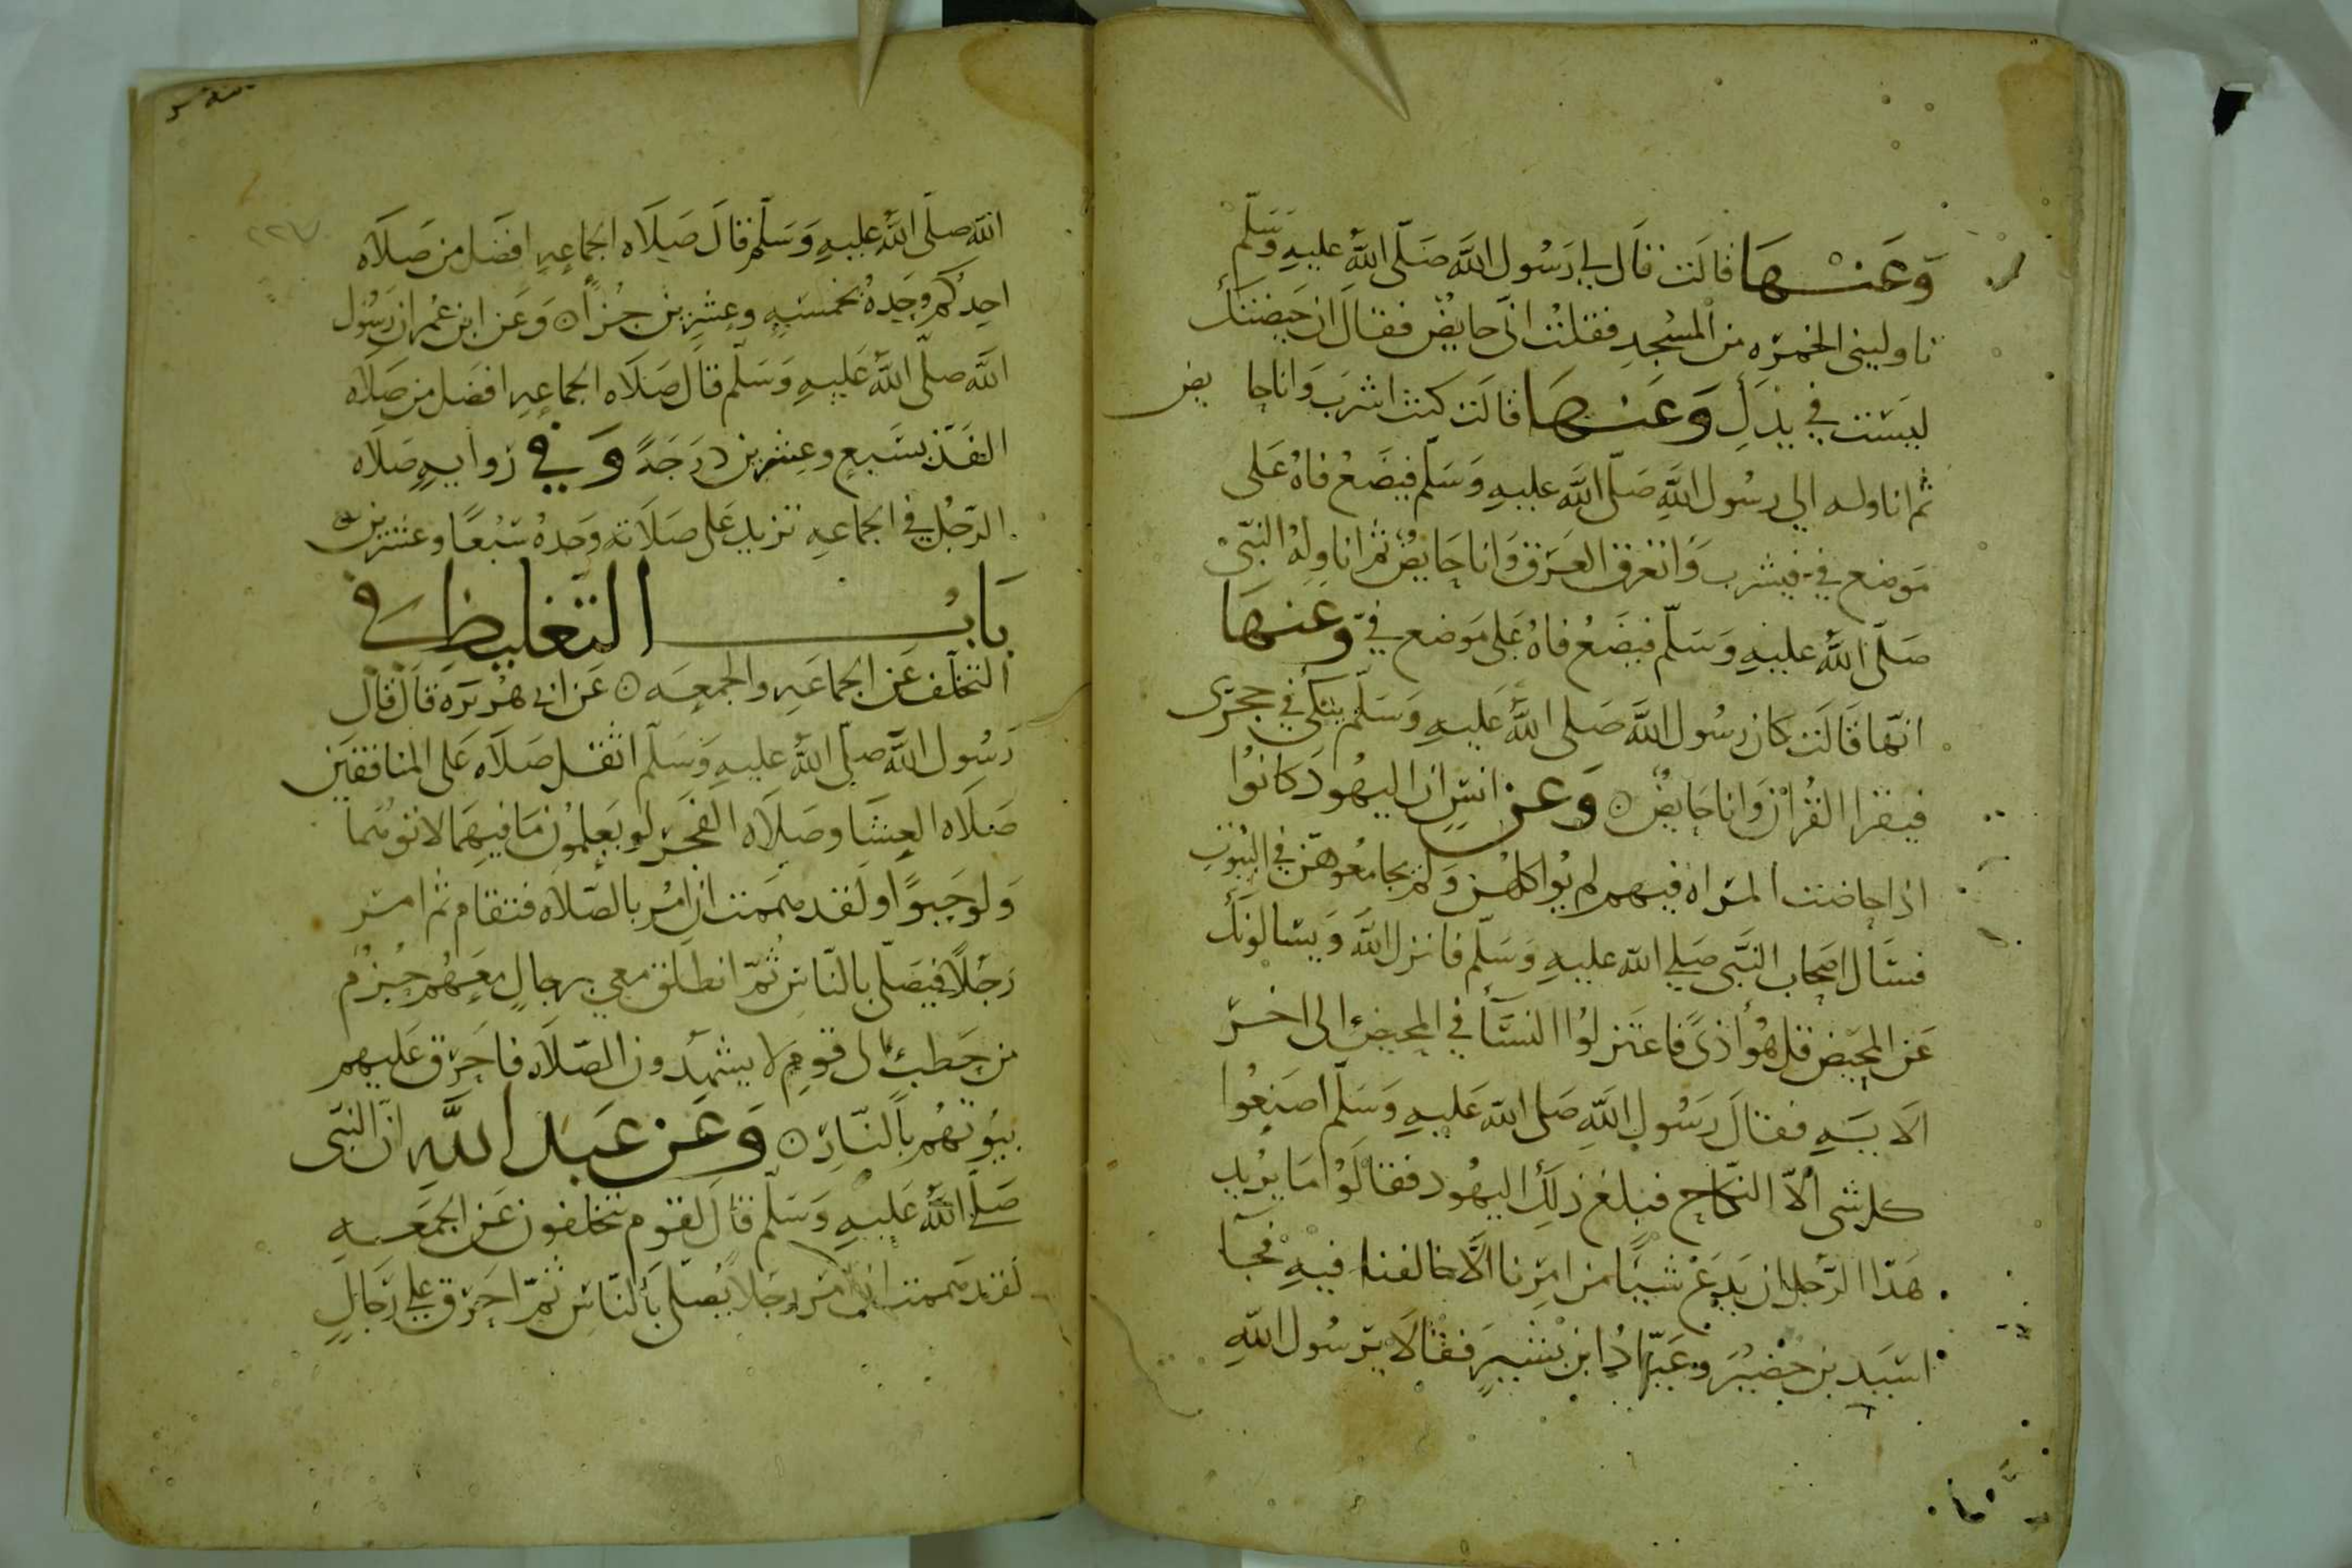 وَعَنْهَا قالَت قالَ لي رَسُول اللَّه صَلّى اللَّهُ عليهِ وَسَلّم
ناوليني الخمرَه من المسْجدِ فقلتْ انّى حايضٌ فقالَ ان حَيضتكَ
ليسَت في يدَكِ وَعَنْهَا قالَت كنت اشرَب وَانا حايض
ثم اناوله الى رسُول اللَّهِ صَلّى اللَّه عليهِ وَسَلّم فيضَعُ فاهُ عَلى
مَوضع فيّ فيشرب وَاتعَرق العَرَق وَانا حَايضٌ ثم اناولهُ النبّى
صَلّى اللَّهُ عليهِ وَسَلّم فيضَعُ فاهُ عَلى مَوضع فيّ وَعَنهَا
انّها قَالَت كان رسُول اللَّه صَلى اللَّهُ عَليهِ وَسَلّم يتكى في حجرَى
فيقرا القُرْانَ وَانا حَايضٌ ۞ وَعن انسٍ ان اليهُود كانوُا
اذا حاضت المرَاه فيهم لم يُواكلهُن وَلم يجامعُوهنّ في البُيُوتِ
فسَال اصحَاب النبَّى صَلى اللّه عليهِ وَسَلّم فانزل اللَّه وَيسَالونَكَ
عَن المحيَض قل هُوَ أذىً فاعتَزلوُا النسَّآ في المحيض الى اخرّ
الآيَهِ فقالَ رَسُول اللَّهِ صَلى اللّه عَليهِ وَسَلّم اصنَعُوا
كل شى الاّ النكاح فبلغ ذلكَ اليهُود فقالَوُا مَا يُريد
هَذا الرّجل ان يَدَعْ شيًا من امرِنا الَّا خالفنا فيهِ فجآ
اسَيد بن حُضيْرَ وعَبّادُ ابن بشيرٍ فقالا يرَسُول اللّهِ
اللّه صلّى اللَّه عليهِ وَسَلّم قالَ صَلَاه الجماعهِ افضَل من صَلَاه
احدكم وحَدهُ بخمسَهٍ وعشرِين جُزأً ۞ وَعَن ابن عُمر ان رَسُول
اللَّه صلّى اللَّهُ عَليهِ وَسَلّم قالَ صَلَاه الجماعهِ افضَل من صَلَاه
الفَذّ بسَبعٍ وعِشرين درَجَهً وَفي رَوايهٍ صَلاه
الرّجُل في الجماعهِ تزيد عَلى صَلَاته وَحدهُ سَبْعًا وعشرين ۞
بَابُ التغليظ في
التخلّف عَن الجماعَهِ والجمعَه ۞ عَن ابى هُريَرَه قَالَ قال
رَسُول اللَّه صلّى اللَّهُ عليهِ وَسَلّم اثقل صَلَاه عَلى المنافقيَن
صَلَاه العِشَا وصَلَاه الفَجَر لَو يَعلمُون مَا فيهمَا لاتوهُمَا
وَلو حَبوًا ولقد هممَت ان امُر بالصّلاه فتقام ثم امر
رَجُلاً فيصَلّى بالنّاس ثُمّ انطلق معي برجالٍ معَهُم حُزم
من حَطبٍ الى قومٍ لا يشهدون الصّلاه فاحَرّق عَليهم
بيُوتهُم بالنّارِ ۞ وَعَن عَبد اللَّهِ انّ النبّى
صَلّى اللَّهُ عَليهِ وَسَلّم قَالَ لقوم يتخلفون عَن الجمعَهِ
لقد هممت ان امر رجَلاً يُصَلى بالنّاسِ ثمّ احَرّق على رّجَالٍ